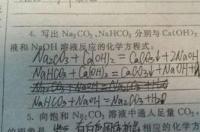 4. 写出 Na₂CO₃、NaHCO₃ 分别与 Ca(OH)₂
液和NaOH 溶液反应的化学方程式。
Na₂CO₃+Ca(OH)₂=CaCO₃↓+2NaOH
NaHCO₃+Ca(OH)₂=CaCO₃↓+NaOH+H
NaHCO₃+NaOH=Na₂CO₃+H₂O
5. 向饱和 Na₂CO₃ 溶液中通入足量 CO₂
相应的化学方